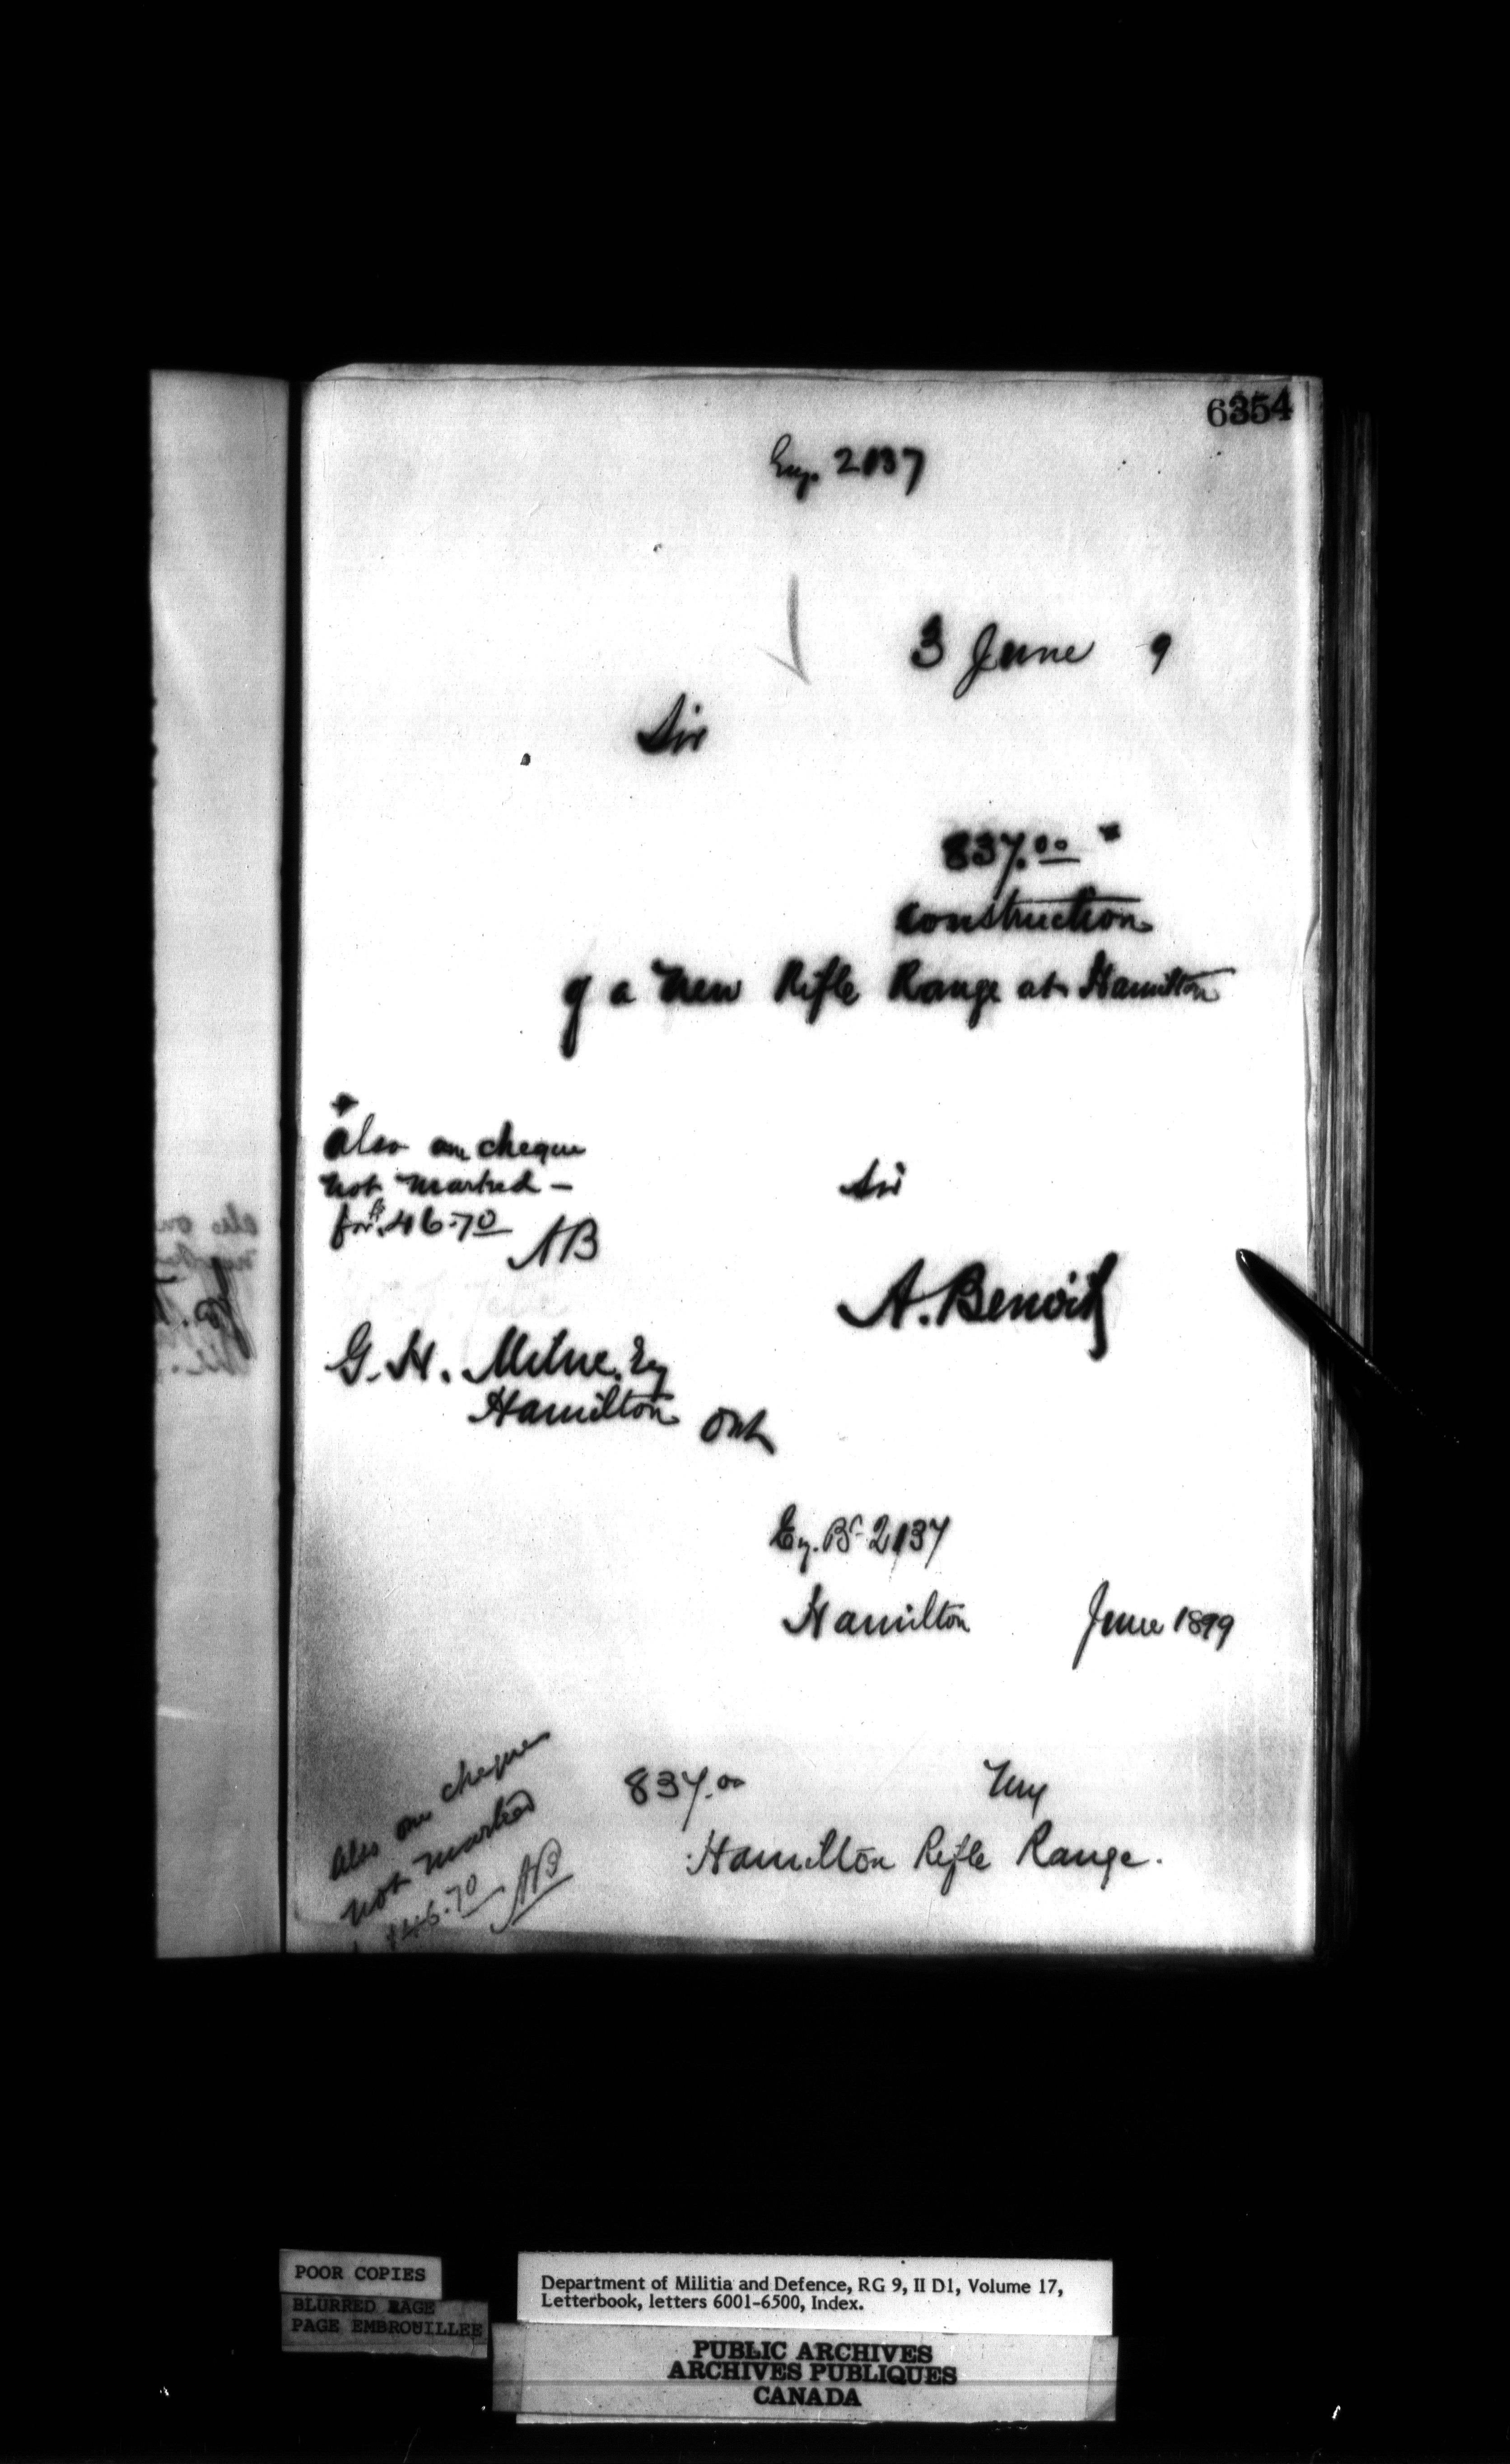 6354
Eng. 2137
3 June 9
Sir
837.00 "
construction
of a New Rifle Range at Hamilton
also one cheque
not marked –
for $46.70 AB
Sir
A. Benoit
G. H. Milne, Esq
Hamilton Ont
2137
Hamilton June 1899
837.00 my
Hamilton Rifle Range.
also one cheque
not marked
$46.70 AB
POOR COPIES
BLURRED PAGE
PAGE EMBROUILLEE
Department of Militia and Defence, RG 9, II D1, Volume 17,
Letterbook, letters 6001-6500, Index.
PUBLIC ARCHIVES
ARCHIVES PUBLIQUES
CANADA